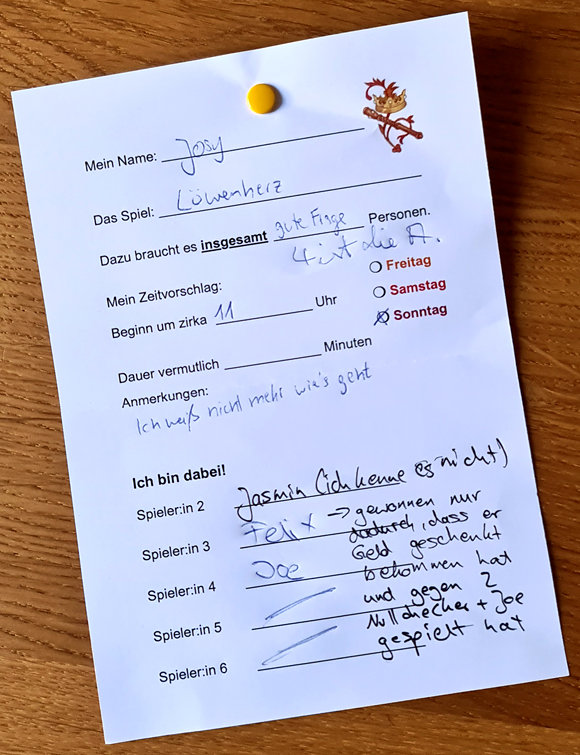 Mein Name: Josy
Das Spiel: Löwenherz
Dazu braucht es insgesamt gute Frage Personen.
4 ist die A.
Mein Zeitvorschlag:
Freitag
Samstag
Beginn um zirka 11 Uhr
Sonntag
Dauer vermutlich Minuten
Anmerkungen:
Ich weiß nicht mehr wie's geht
Ich bin dabei!
Spieler:in 2 Jasmin (ich kenne es nicht)
Spieler:in 3 Felix → gewonnen nur
dadurch, dass er
Spieler:in 4 Joe Geld geschenkt
bekommen hat
Spieler:in 5 und gegen 2
Nullchecker + Joe
Spieler:in 6 gespielt hat